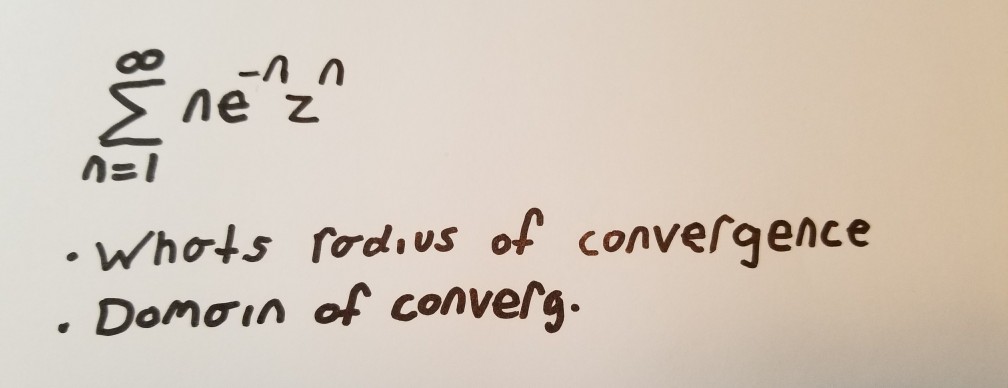 ∞
Σ ne⁻ⁿzⁿ
n=1
• Whats radius of convergence
• Domain of converg.